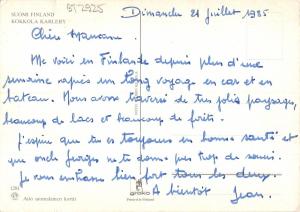 BT2925
SUOMI FINLAND
KOKKOLA KARLEBY
Dimanche 21 Juillet 1985
Chère
Me voici en Finlande depuis plus d'une
semaine après un long voyage en car et en
bateau. Nous avons traversé de très jolis paysages,
beaucoup de lacs et beaucoup de forêts.
J'espère que tu es toujours en bonne santé et
que oncle Georges ne te donne pas trop de soucis.
Je vous embrasse bien fort tous les deux.
A bientôt
Jean.
1281
Aito suomalainen kortti
Printed in Finland